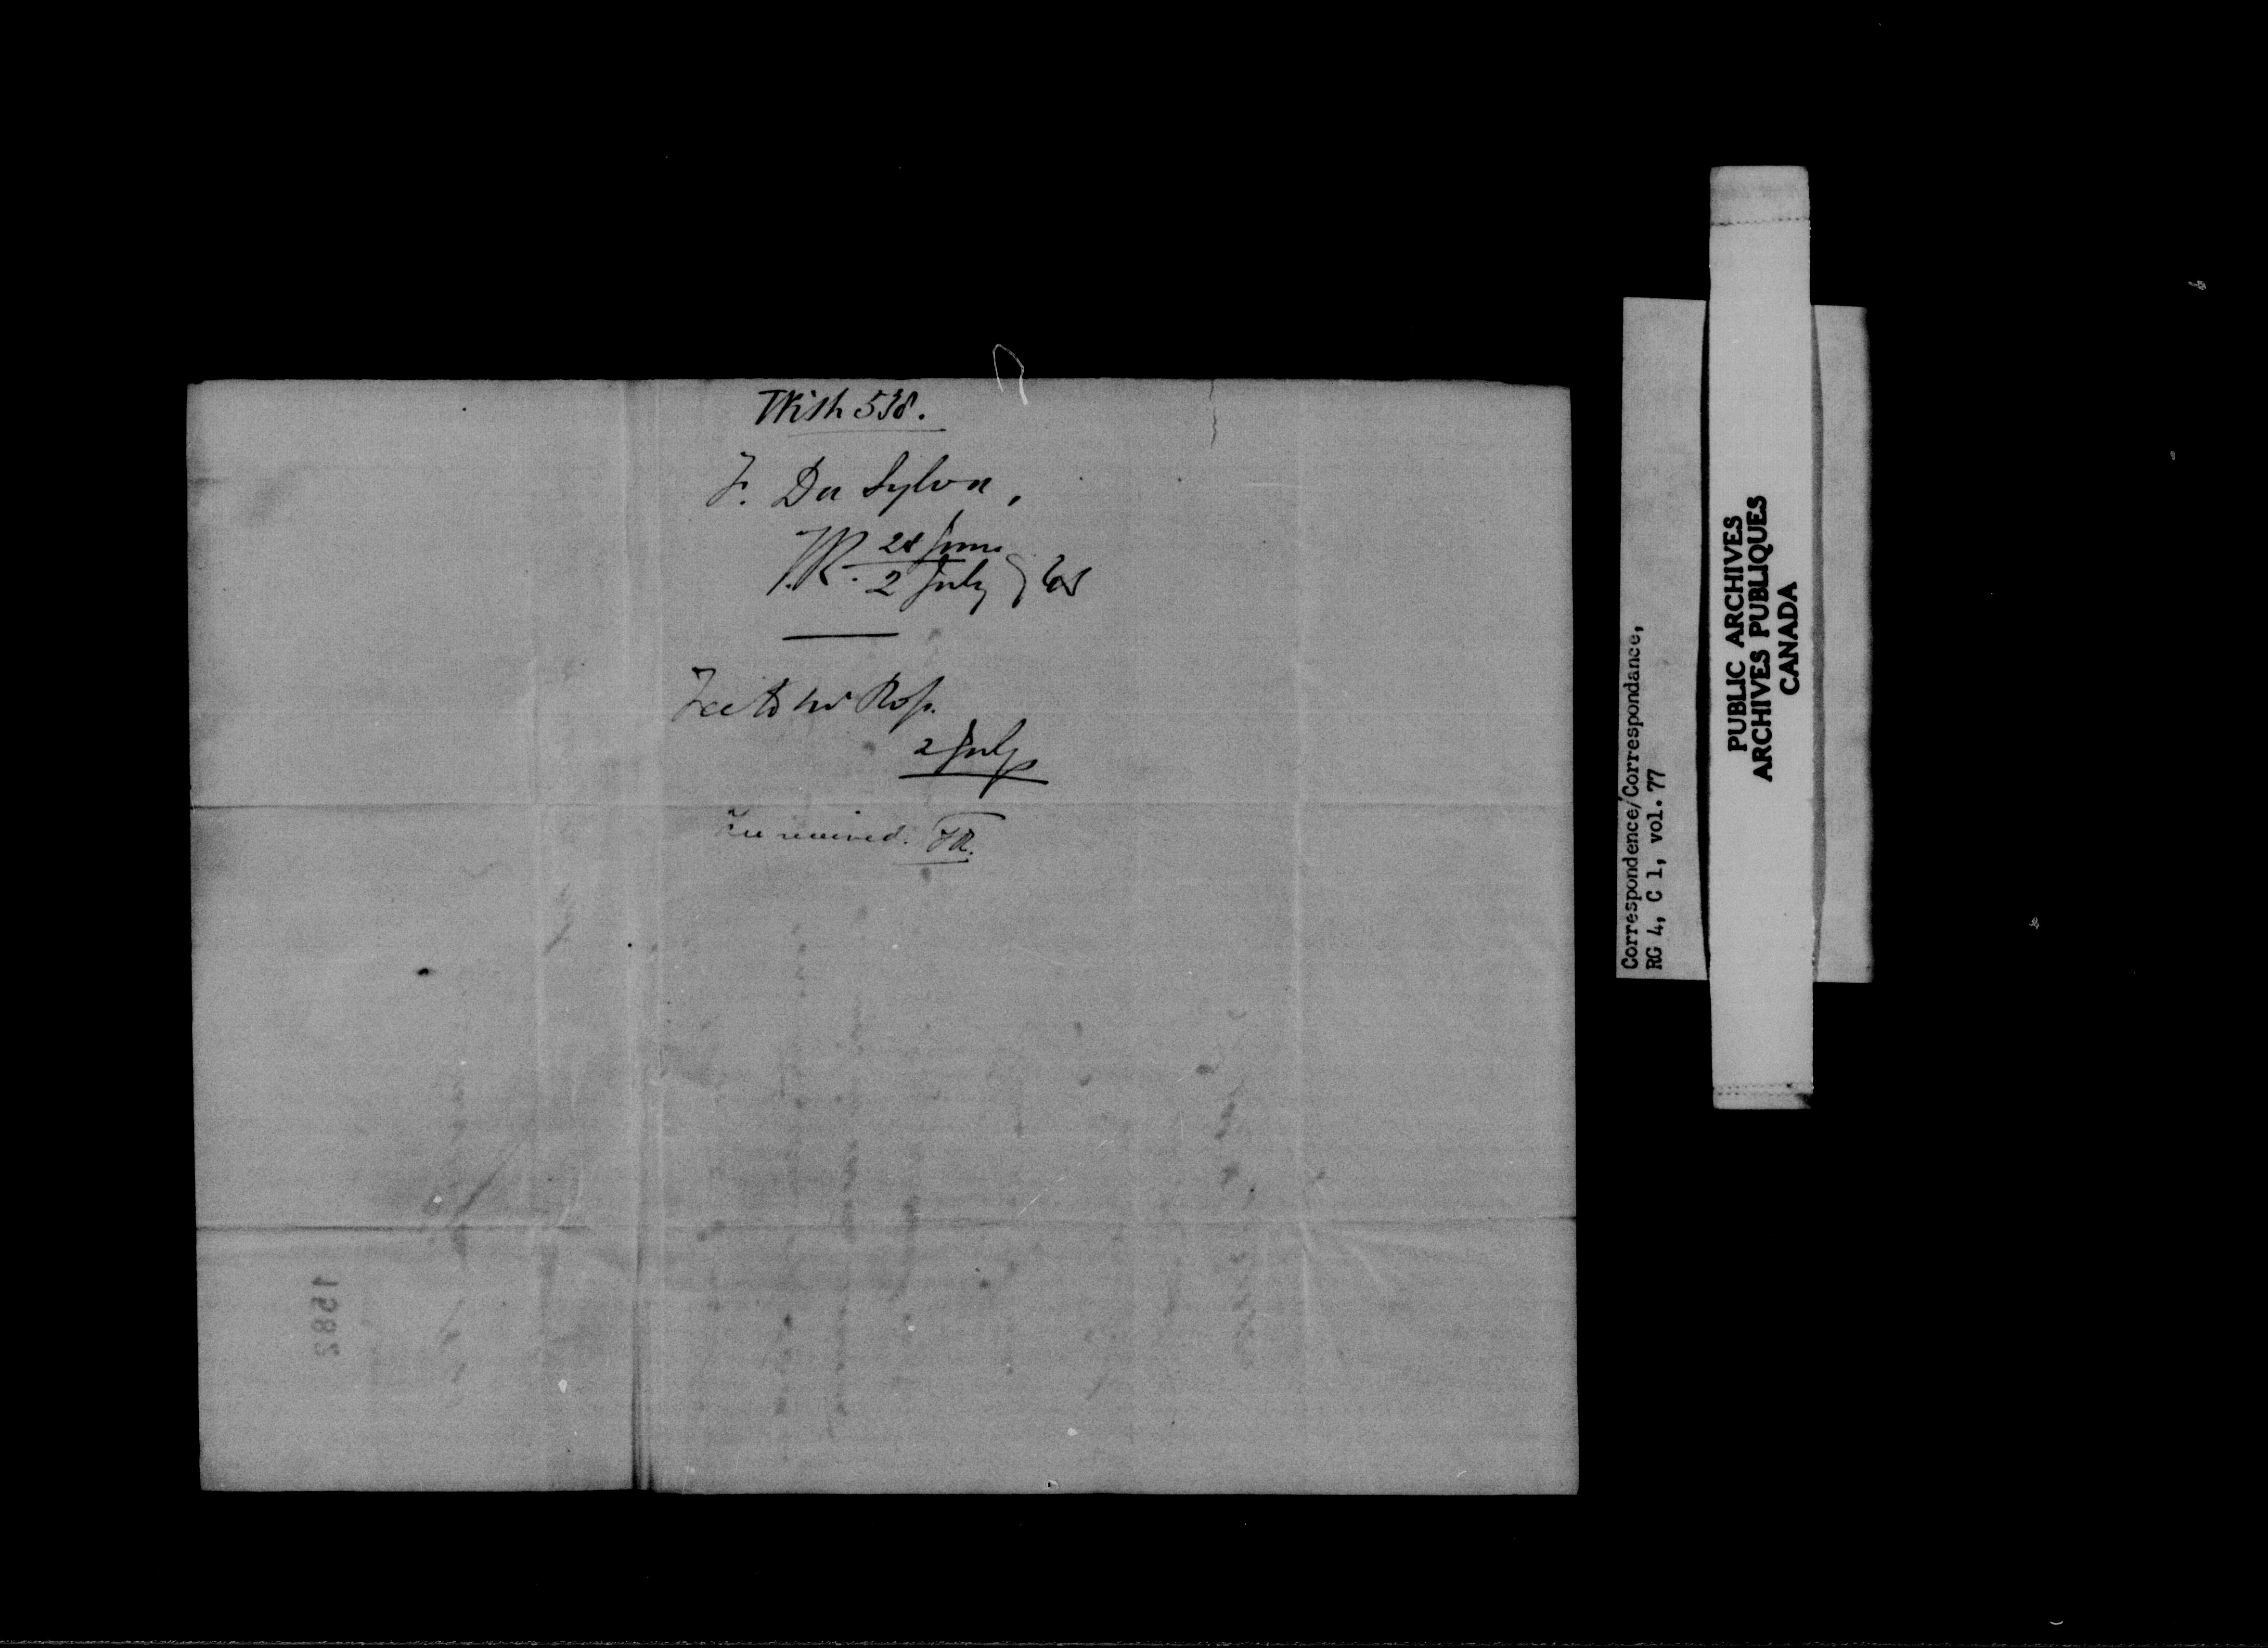 With 538.
F. Da Sylva,
T.R. 28 June
2 July
Fee to Mr Ross.
2 July
Fee received. TR.
15882
Correspondence/Correspondance,
RG 4, C 1, vol. 77
PUBLIC ARCHIVES
ARCHIVES PUBLIQUES
CANADA